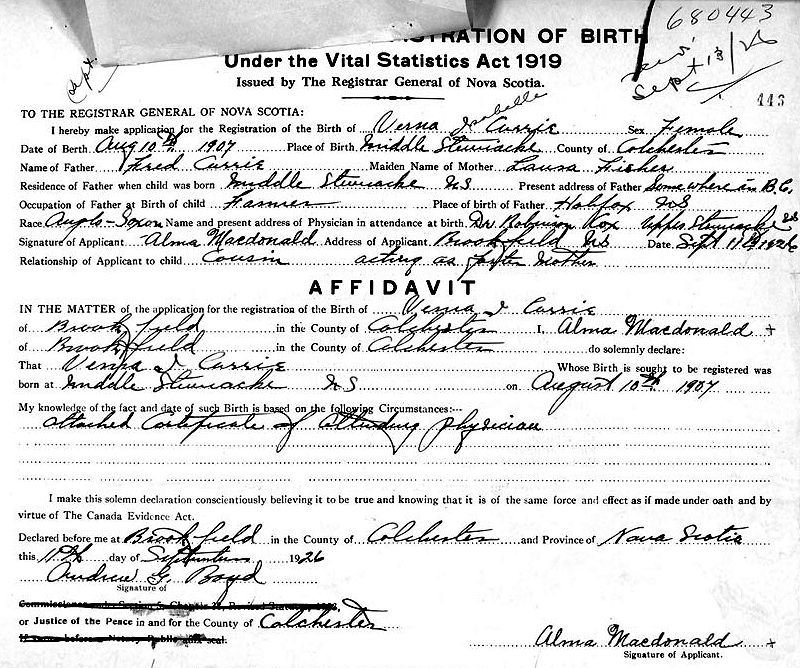 680443
TRATION OF BIRTH
Under the Vital Statistics Act 1919
Sept 13/26
Issued by The Registrar General of Nova Scotia.
443
TO THE REGISTRAR GENERAL OF NOVA SCOTIA:
Isabelle
I hereby make application for the Registration of the Birth of Verna I Currie Sex Female
Date of Berth Aug 10th 1907 Place of Birth Middle Stewiacke County of Colchester
Name of Father Fred Currie Maiden Name of Mother Laura Fisher
Residence of Father when child was born Middle Stewiacke NS Present address of Father Somewhere in B.C.
Occupation of Father at Birth of child Farmer Place of birth of Father Halifax NS
Race Anglo-Saxon Name and present address of Physician in attendance at birth Dr Robinson Cox Upper Stewiacke NS
Signature of Applicant Alma Macdonald Address of Applicant Brookfield NS Date Sept 11th 1926
Relationship of Applicant to child Cousin acting as foster Mother
AFFIDAVIT
IN THE MATTER of the application for the registration of the Birth of Verna I Currie
of Brookfield in the County of Colchester I, Alma Macdonald +
of Brookfield in the County of Colchester do solemnly declare:
That Verna I Currie Whose Birth is sought to be registered was
born at Middle Stewiacke NS on August 10th 1907
My knowledge of the fact and date of such Birth is based on the following Circumstances:--
Attached Certificate of Attending physician
I make this solemn declaration conscientiously believing it to be true and knowing that it is of the same force and effect as if made under oath and by
virtue of The Canada Evidence Act.
Declared before me at Brookfield in the County of Colchester and Province of Nova Scotia
this 11th day of September 1926
Andrew G. Boyd
Signature of
or Justice of the Peace in and for the County of Colchester
If same before Notary Public affix seal.
Alma Macdonald +
Signature of Applicant.